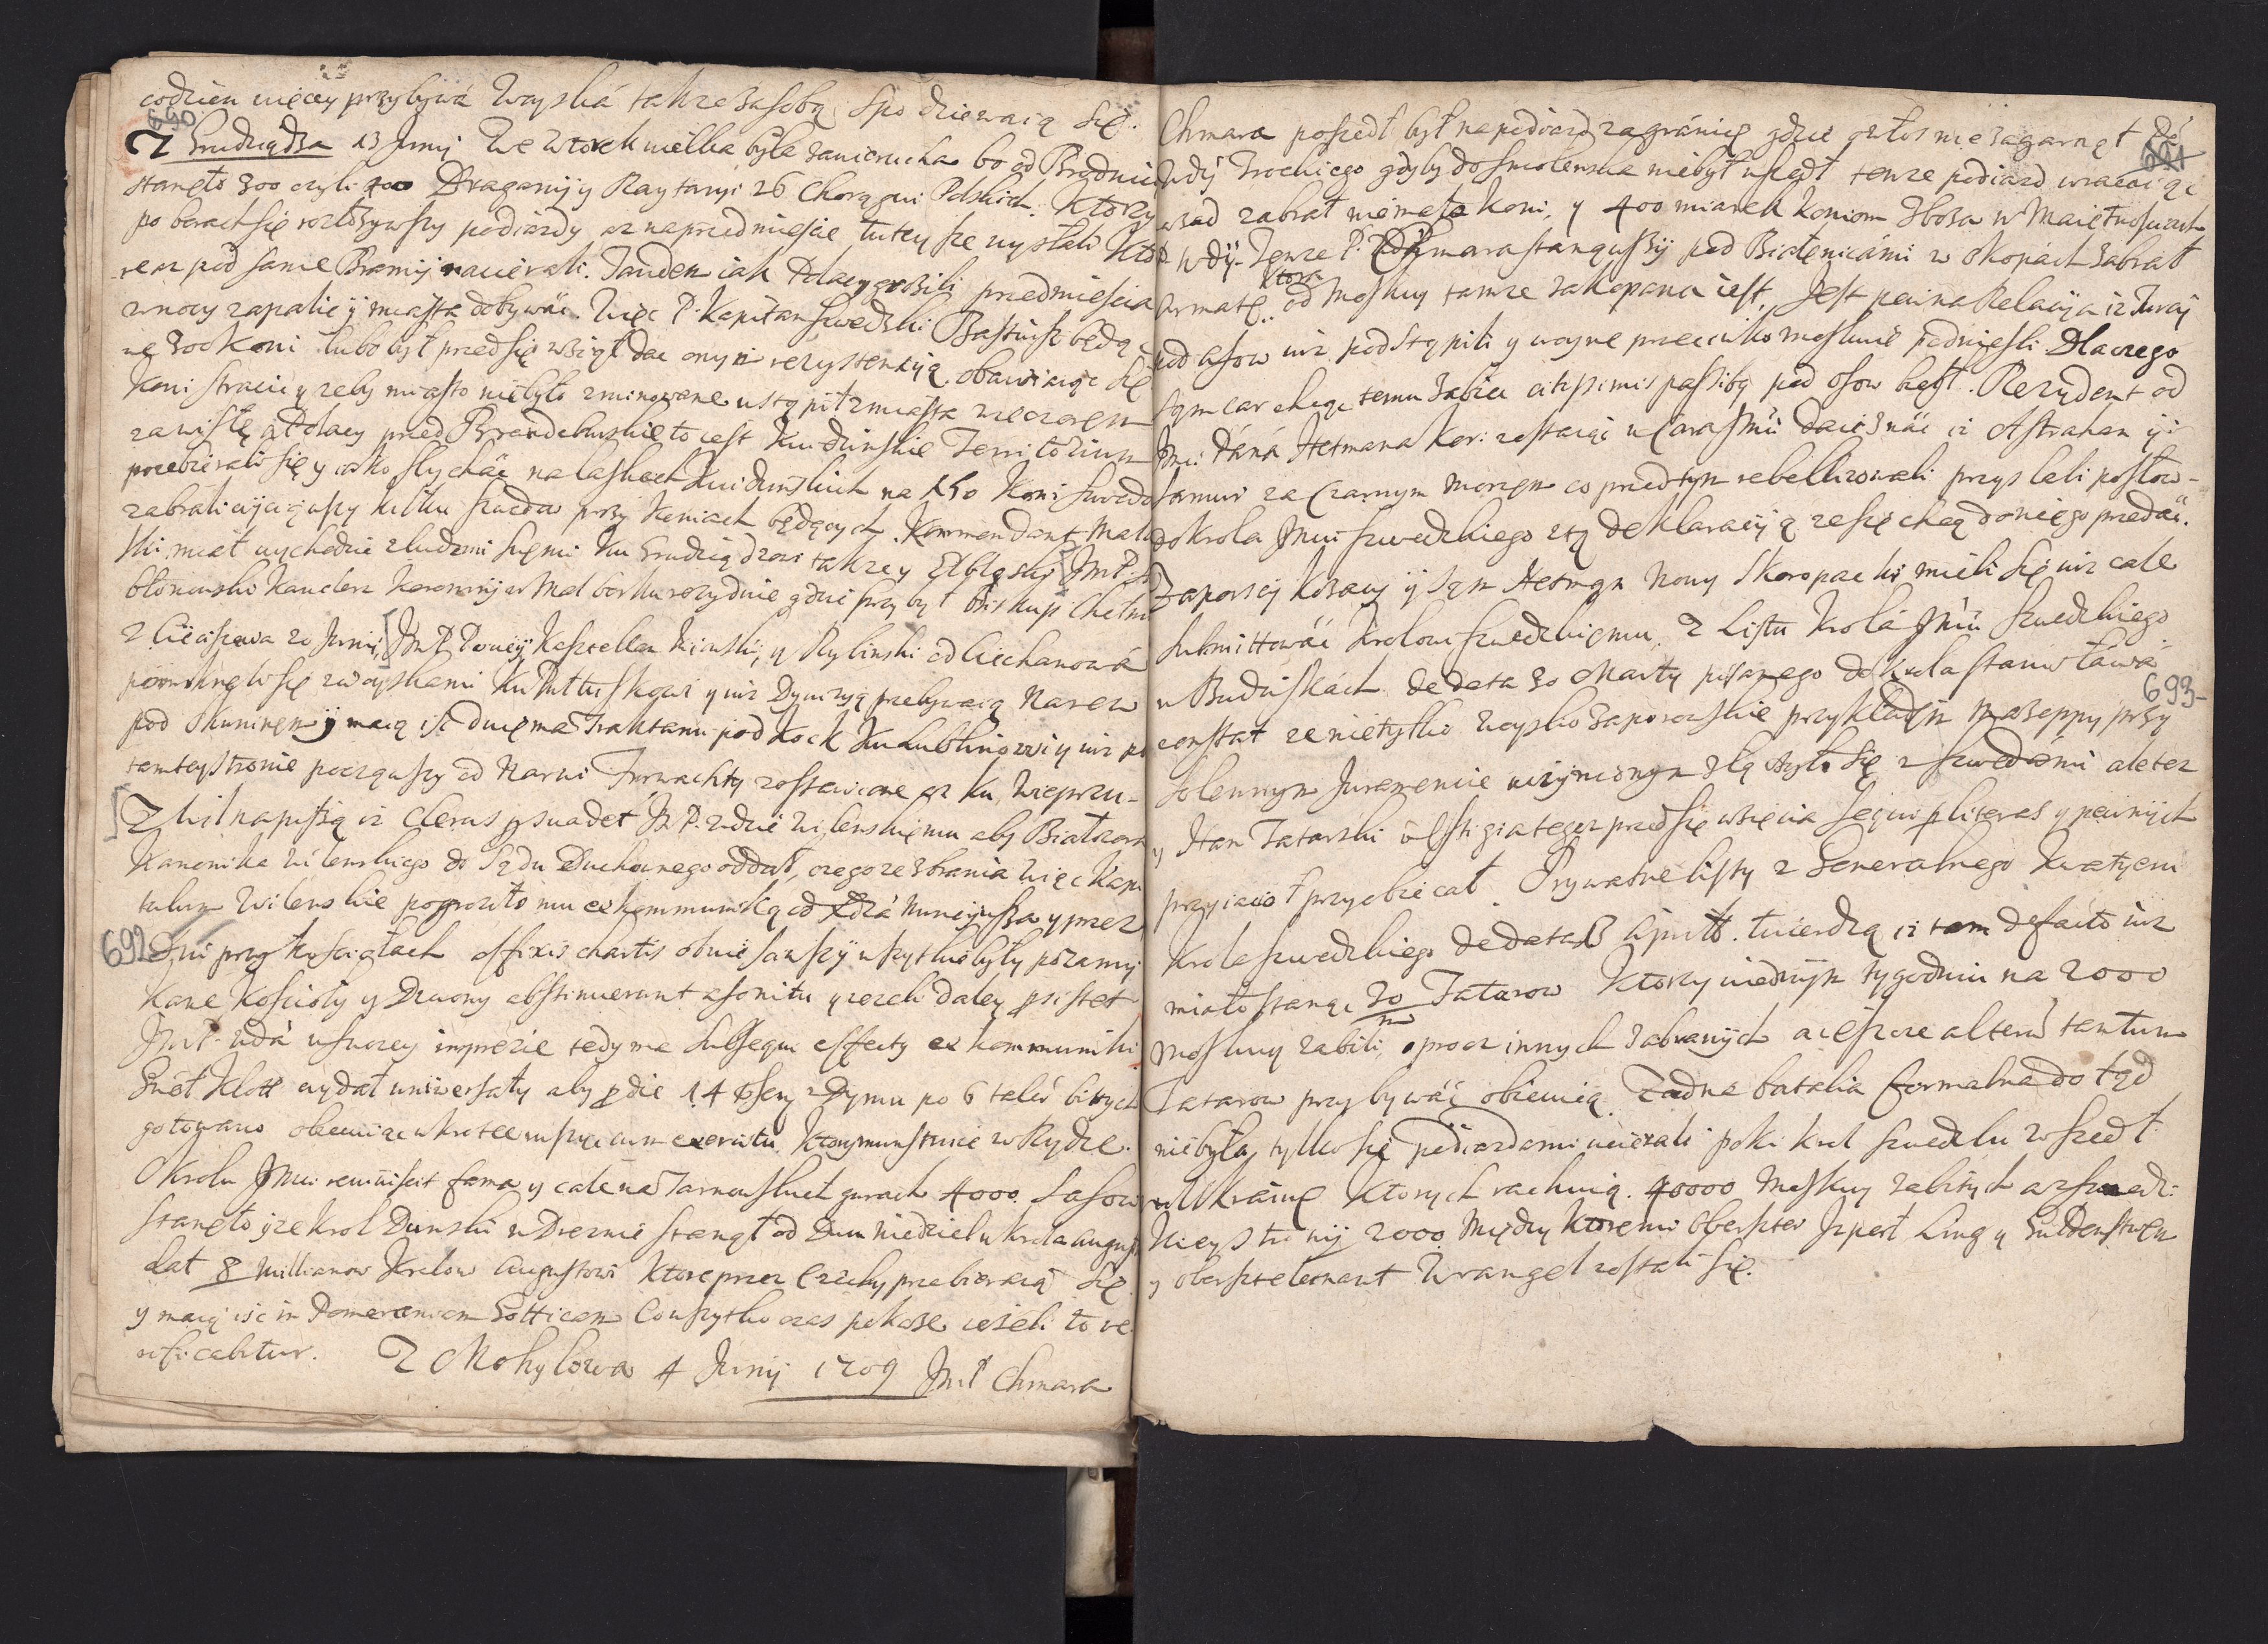 codzien więcey przybywa Woyska takze za sobą spodziewaią się.
690
Z Grudiądza 13 Junij We Wtorek wielka była zawierucha bo od Brodnice
stanęło 300 czyli 400 Draganijy Raytaryi 26 Chorągwi Polskich. Ktory
po borach się rozłozywszy podiazdy az na przedmieście tuteysze wysłali Kto
re az pod same Bramij nacierali. Tanden iak Polacy grozili przedmieścia
w nocy zapalic ij miasta dobywać. Więc P. Kapitan szwedzki będąc
we 300 Koni lubo był przedsię wziął dac onym rezystencyią obawiaiąc się
Koni stracic y zeby miasto niebyło zruinowane ustąpił z miasta wieczorem
za wisłę a Polacy przed Brandeburskie to iest Kwidzinskie Territorium
przebierali się y iako słychać na łąkach Kwidzinskich na 150 Koni szwedz
zabrali wyciąwszy kilku szwedow przy Koniach będących. Kommendant Malb
ski miał wychodzic z ludzmi swemi Ku Grudziądzowi takze y Elbląski JmP. Ja
błonowski Kanclerz Koronnij w Malborku rezyduie gdzie przybył Biskup Chełmi
z Ciechanowa 20 Junij, JmP Pociey Kasztellan Kiiowski, y Rybinski od Ciechanowa
pomknęło się z woyskami Ku Pułtuskowi y iuz Dywizyą przebywaią Narew
pod Skuninem ij maią iść dwiema Traktami pod Kock Ku Lublinowi y iuz po
tamtey stronie począwszy od Narwi Forwachty zostawione az ku Wieprzu.
Z Wilna piszą iz Clerus psuadet JmP. Wdzie Wilenskiemu aby Białozora
Kanonika Wilenskiego do Sądu Duchownego oddał, czego ze zbrania Więc Kapi
tulum Wilenskie pogroziło mu exkommuniką od Xdza Nuncyusza y przez
692
Dni przy Kosciołach affixis chartis obwiesciwszy wszytkie były pozamy
Kane Kościoły y Dzwony abstinuerunt a sonitu y iezeli daley psistet
JmP. Wda w swoiey imprezie tedy ma Subsequi effectu exkommuniki
Grał Klott wydał uniwersały aby p die 14 psentis z Dymu po 6 taleró bitych
gotowano obiecuiąc wkrotce ruszyc cum exercitu Ktory munstruie w Rydze.
O Krolu Jmci rewiwiscit fama y ze na Tarnowskich gorach 4000 Sasow
stanęło y ze Krol Dunski w Dreznie stanął od Dwu niedziel u Krola August
dał 8 Millionow Krolow Augustowi Ktore przez Czechy przebieraią się
y maią iść in Pomeraniam Gotticam Co wszytko czas pokaze iezeli to ve
rificabitur. Z Mohylowa 4 Junij 1709 JmP Chmara
Chmara poszedł był na podiazd za granicę gdzie oztos nie zagarnął
691
Wdy Trockiego gdyby do Smolenska niebył uszedł tenze podiazd wracaiąc
wzad zabrał niemało koni, y 400 miarek Koniom Zboza w Maiętnosciach
P. Wdy. Tenze P. Chmara stanąwszy pod Białenicámi w okopách zabrał
armatę ktora od Moskwy tamze zakopana iest. Jest pewna Relacyia iz Turcy
pod Asow iuz podstąpili y woynę przeciwko Moskwie podnięsli Dlaczego
sam car chcąc temu zabiec citissimis passibus pod Osow biezt. Rezydent od
Jmci Pána Hetmana Kor: zostaiąc u Cara Jmci daie znáć iz Astrahan y i
samui za Czarnym morzem co przed tym rebellizowali przyslali posłow
do krola Jmci szwedzkiego z tą deklaracyią ze się chcą do niego przedać.
Zaporscij Kozacy y sam Hetman Nowy Skoropacki mieli się iuz cale
submittowáć Krolowi szwedzkiemu. Z Listu Krola Jmci szwedzkiego
w Budziskách de data 30 Marty pisanego do Krola Stanisława
693
constat ze nietylko Woysko zaporowskie przykładem Mazeppy przy
solennym Juramencie uczynionym złączyło się z szwedámi ale tez
y Han Tatarski vestigia tegoz przedsięwzięcia sequi p literas y pewnych
przyiacioł przyobiecał. Prywatne listy z Generalnego Kwatyru
Krola szwedzkiego de data 13 Aprill. twierdzą iz tam defacto iuz
miało stanąc 30/m Tatarow Ktorzy w iednym tygodniu na 2000
Moskwy zabili, oprocz innych zabranych a ieszcze alterum tantum
Tatarow przybywáć obiecuią. Zadna batalia formalna do tąd
niebyła, tylko się podiazdami ucierali poki krol szwedzki wszedł
w Ukrainę Ktorych rachuią. 40000 Moskwy zabitych a z szwedz:
Kiey strony 2000 Między Ktoremi Oberszter Ling y Guldensztern
y oberszteleitnant Wrangel zostali się.